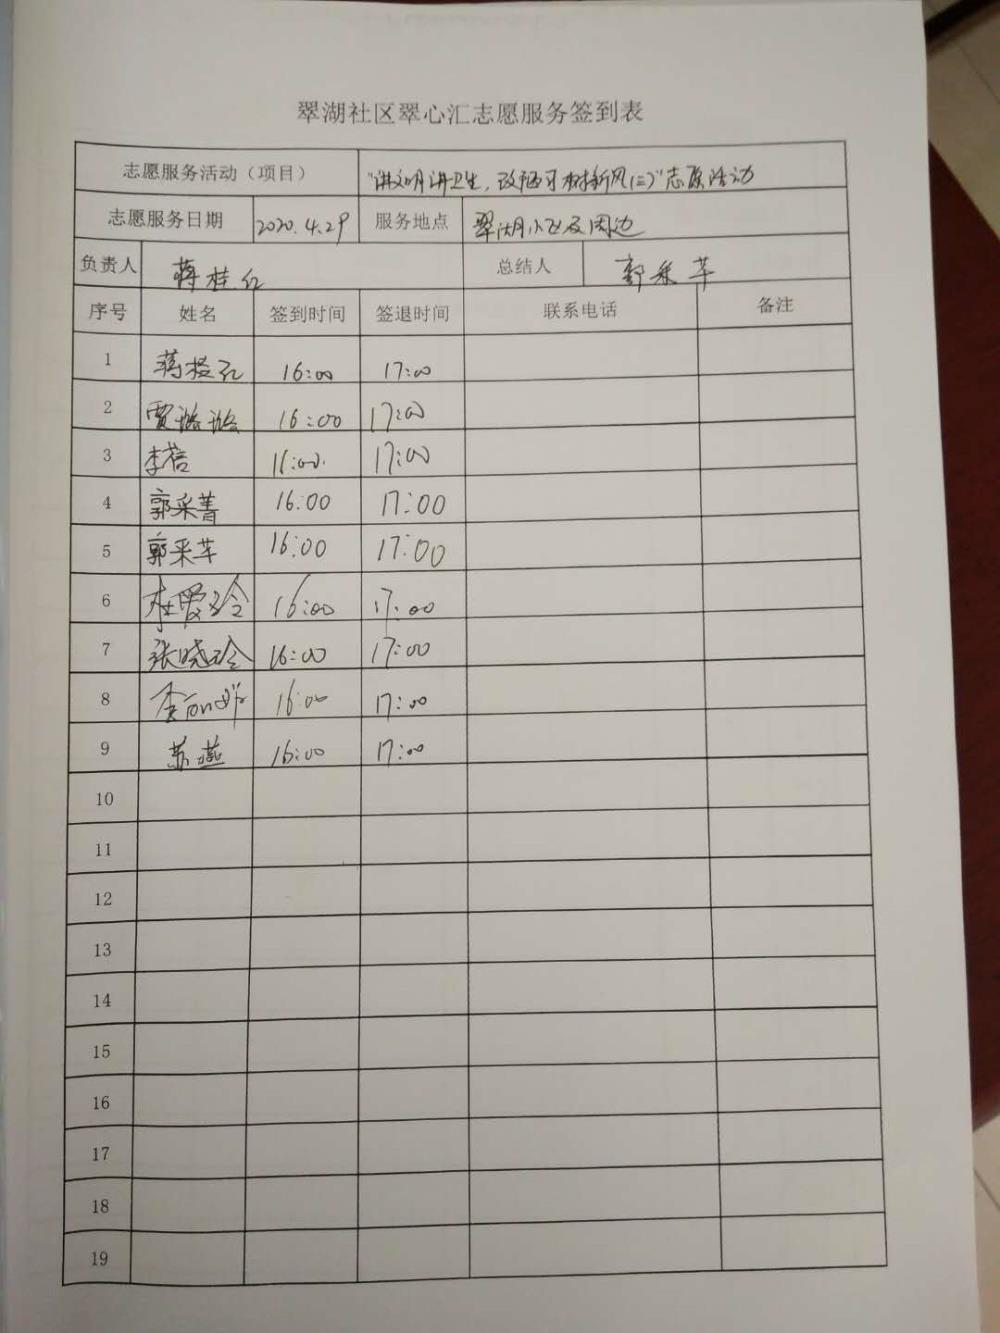 翠湖社区翠心汇志愿服务签到表
志愿服务活动（项目） "讲文明讲卫生，改陋习树新风(三)"志愿活动
志愿服务日期 2020.4.29 服务地点 翠湖小区及周边
负责人 蒋桂红 总结人 郭采芊
序号 姓名 签到时间 签退时间 联系电话 备注
1 蒋桂红 16:00 17:00
2 贾 16:00 17:00
3 李 16:00 17:00
4 郭采菁 16:00 17:00
5 郭采芊 16:00 17:00
6 杜爱玲 16:00 17:00
7 张晓玲 16:00 17:00
8 李丽娜 16:00 17:00
9 苏燕 16:00 17:00
10
11
12
13
14
15
16
17
18
19